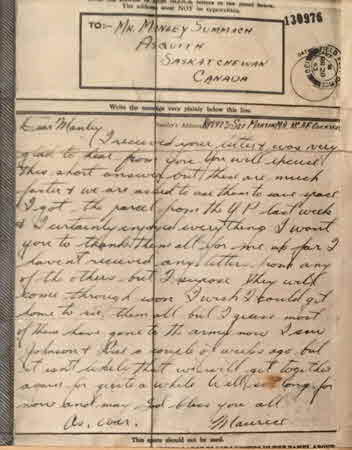 letters in the panel below.
This address must NOT be typewritten.
130976
TO:- MR. MANLEY SUMMACH
ASQUITH
SASKATCHEWAN
CANADA
Write the message very plainly below this line.
Sender's Address
Dear Manley
I received your letter & was very
glad to hear from you. You will excuse
this short answer but these are much
faster & we are asked to use them to save space
I got the parcel from the Y.P. last week
& I certainly enjoyed everything. I want
you to thank them all for me up far I
haven't received any letters from any
of the others but I suppose they will
come through soon I wish I could get
home to see them all but I guess most
of them have gone to the army now I saw
Johnson & a couple of weeks ago, but
it isn't likely that we will get together
again for quite a while Well, so long for
now and may God bless you all
As ever.
Maurice
This space should not be used.